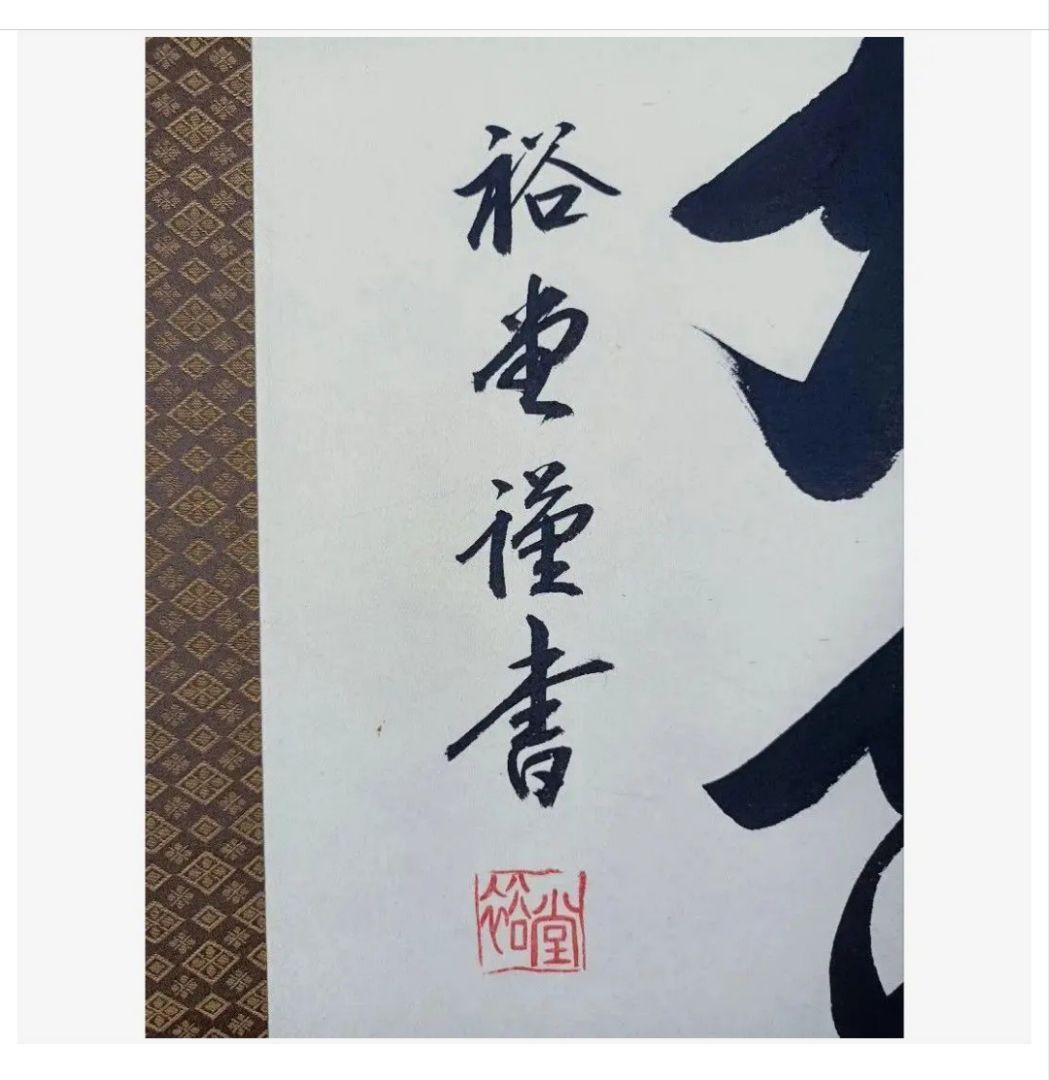 裕堂謹書
裕堂